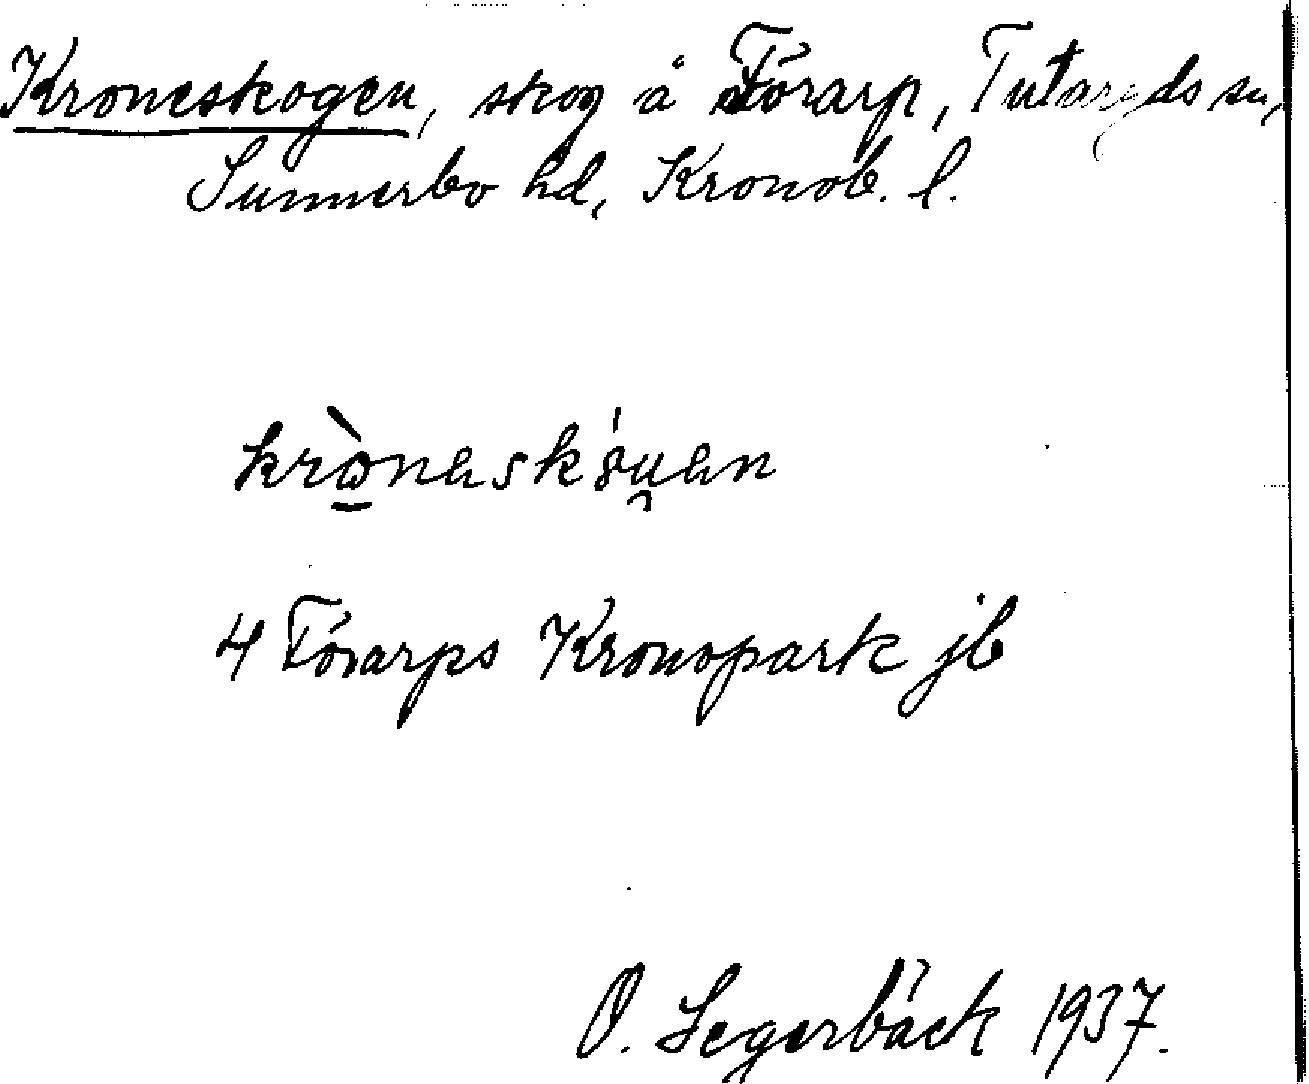 Kroneskogen, skog å Förarp, Tutaryds sn,
Sunnerbo hd, Kronob. l.
4 Förarps Kronopark jb
O. Segerbäck 1937.